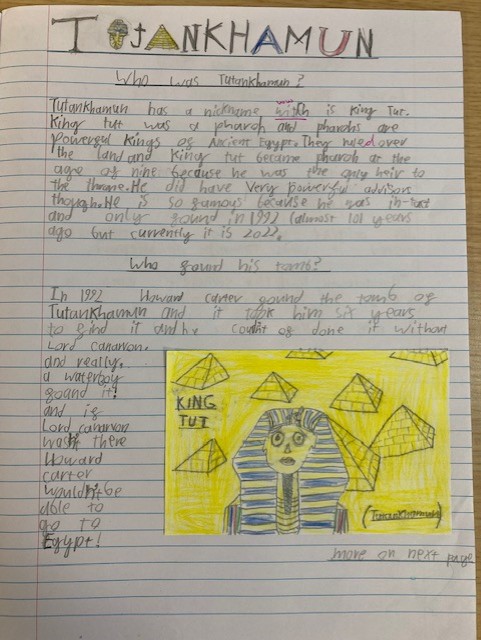 TUTANKHAMUN
Who was Tutankhamun?
Tutankhamun has a nickname wich is King Tut.
King tut was a pharoh and pharohs are
powerful kings of Ancient Egypt. They ruled over
the land and King tut became pharoh at the
age of nine because he was the only heir to
the throne. He did have very powerful advisors
though. He is so famous because he was in-tact
and only found in 1992 (almost 101 years
ago but currently it is 2022.
Who found his tomb?
In 1992 Howard carter found the tomb of
Tutankhamun and it took him six years
to find it and he could't of done it without
Lord canarvon.
and really,
a waterboy
found it!
and if
Lord canarvon
wasn't there
Howard
carter
wouldn't be
able to
go to
Egypt!
KING
TUT
(Tutankhamun)
more on next page